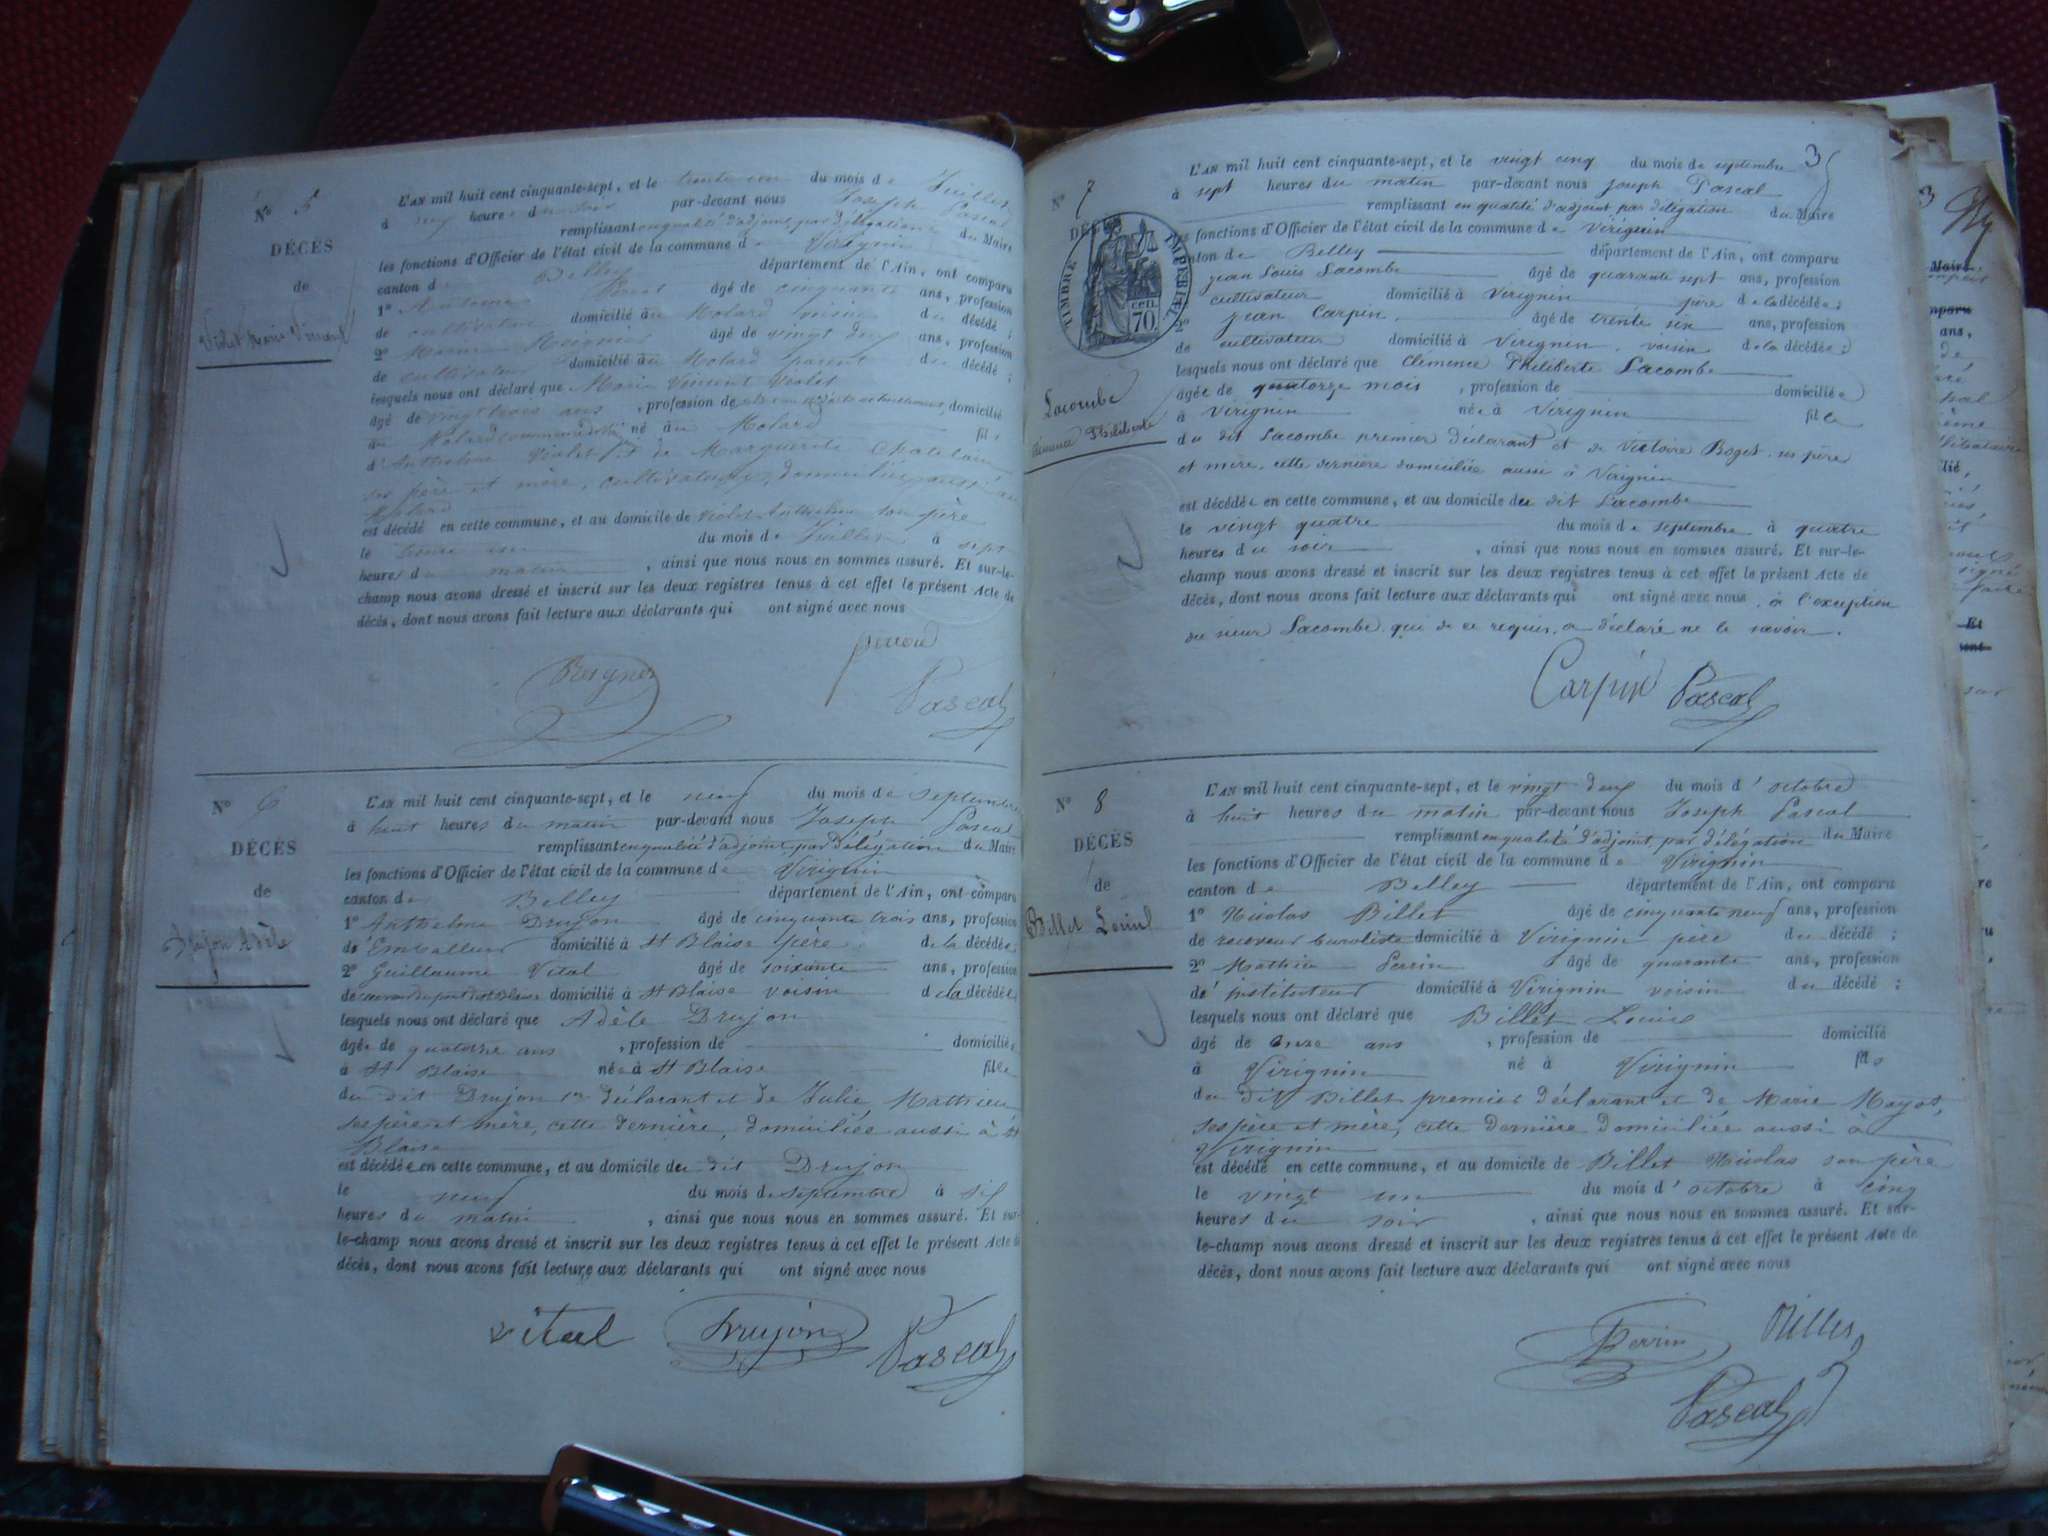 N° 5
DÉCÈS
de
Violet Marie Vincent
L'AN mil huit cent cinquante-sept, et le trente un du mois de Juillet
à heures du par-devant nous Joseph Pascal
remplissant en qualité d'adjoint par délégation du Maire
les fonctions d'Officier de l'état civil de la commune de Virignin
canton de Belley département de l'Ain, ont comparu
1° Antoine âgé de cinquante ans, profession
de cultivateur domicilié au Molard voisin du décédé ;
2° âgé de vingt ans, profession
de cultivateur domicilié au Molard parent du décédé ;
lesquels nous ont déclaré que Marie Vincent Violet
âgé de vingt trois ans , profession de domicilié
au Molard né au Molard fils
d'Anthelme Violet et de Marguerite Chatelain
ses père et mère, cultivateurs, domiciliés aussi au
Molard
est décédé en cette commune, et au domicile de Violet Anthelme son père
le trente un du mois de Juillet à sept
heures du matin , ainsi que nous nous en sommes assuré. Et sur-le-
champ nous avons dressé et inscrit sur les deux registres tenus à cet effet le présent Acte de
décès, dont nous avons fait lecture aux déclarants qui ont signé avec nous
Pascal
N° 6
DÉCÈS
de
Drujon Adèle
L'AN mil huit cent cinquante-sept, et le neuf du mois de septembre
à huit heures du matin par-devant nous Joseph Pascal
remplissant en qualité d'adjoint par délégation du Maire
les fonctions d'Officier de l'état civil de la commune de Virignin
canton de Belley département de l'Ain, ont comparu
1° Anthelme Drujon âgé de cinquante trois ans, profession
d'Emballeur domicilié à St Blaise père de la décédée ;
2° Guillaume Vital âgé de soixante ans, profession
de domicilié à St Blaise voisin de la décédée
lesquels nous ont déclaré que Adèle Drujon
âgée de quatorze ans , profession de domiciliée
à St Blaise née à St Blaise fille
du dit Drujon 1er déclarant et de Julie Mathieu
ses père et mère, cette dernière, domiciliée aussi à St
Blaise
est décédée en cette commune, et au domicile du dit Drujon
le neuf du mois de septembre à six
heures du matin , ainsi que nous nous en sommes assuré. Et sur-
le-champ nous avons dressé et inscrit sur les deux registres tenus à cet effet le présent Acte de
décès, dont nous avons fait lecture aux déclarants qui ont signé avec nous
vital Drujon Pascal
3
N° 7
DÉCÈS
TIMBRE IMPERIAL
70 cen.
Lacombe
Clémence Philiberte
L'AN mil huit cent cinquante-sept, et le vingt cinq du mois de septembre
à sept heures du matin par-devant nous joseph Pascal
remplissant en qualité d'adjoint par délégation du Maire
les fonctions d'Officier de l'état civil de la commune de Virignin
canton de Belley département de l'Ain, ont comparu
jean Louis Lacombe âgé de quarante sept ans, profession
cultivateur domicilié à Virignin père de la décédée ;
2° jean Carpin âgé de trente six ans, profession
de cultivateur domicilié à Virignin, voisin de la décédée ;
lesquels nous ont déclaré que Clémence Philiberte Lacombe
âgée de quatorze mois , profession de domiciliée
à Virignin née à Virignin fille
du dit Lacombe premier déclarant et de Victoire Boget, ses père
et mère, cette dernière domiciliée aussi à Virignin
est décédée en cette commune, et au domicile du dit Lacombe
le vingt quatre du mois de septembre à quatre
heures du soir , ainsi que nous nous en sommes assuré. Et sur-le-
champ nous avons dressé et inscrit sur les deux registres tenus à cet effet le présent Acte de
décès, dont nous avons fait lecture aux déclarants qui ont signé avec nous, à l'exception
du sieur Lacombe qui de ce requis, a déclaré ne le savoir.
Carpin Pascal
N° 8
DÉCÈS
de
Billet Louis
L'AN mil huit cent cinquante-sept, et le vingt deux du mois d'octobre
à huit heures du matin par-devant nous Joseph Pascal
remplissant en qualité d'adjoint par délégation du Maire
les fonctions d'Officier de l'état civil de la commune de Virignin
canton de Belley département de l'Ain, ont comparu
1° Nicolas Billet âgé de cinquante neuf ans, profession
de receveur buraliste domicilié à Virignin père du décédé ;
2° Mathieu Perrin âgé de quarante ans, profession
d'instituteur domicilié à Virignin voisin du décédé ;
lesquels nous ont déclaré que Billet Louis
âgé de onze ans , profession de domicilié
à Virignin né à Virignin fils
du dit Billet premier déclarant et de Marie Mayot,
ses père et mère, cette dernière domiciliée aussi à
Virignin
est décédé en cette commune, et au domicile de Billet Nicolas son père
le vingt un du mois d'octobre à cinq
heures du soir , ainsi que nous nous en sommes assuré. Et sur-
le-champ nous avons dressé et inscrit sur les deux registres tenus à cet effet le présent Acte de
décès, dont nous avons fait lecture aux déclarants qui ont signé avec nous
Perrin Billet
Pascal